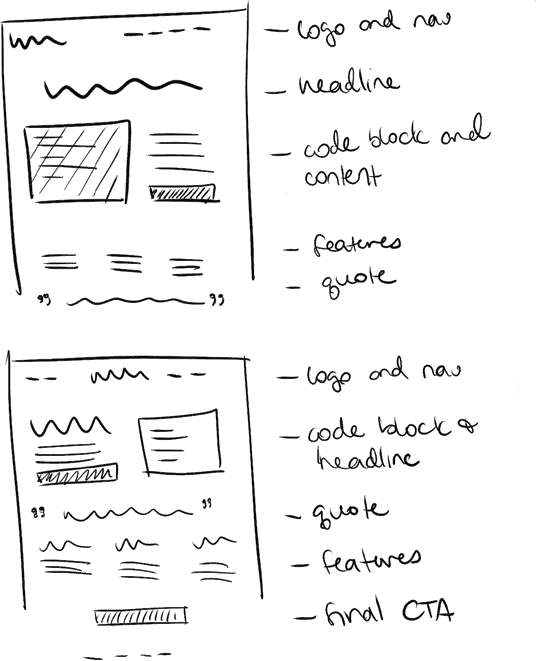 - logo and nav
- headline
- code block and
content
- features
- quote
- logo and nav
- code block &
headline
- quote
- features
- final CTA